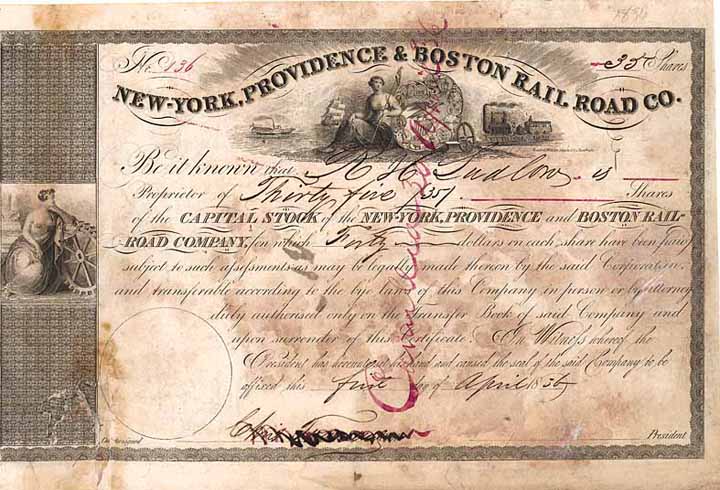 No. 136
35 Shares
NEW-YORK, PROVIDENCE & BOSTON RAIL ROAD CO.
Be it known that R H Ludlow is
Proprietor of Thirty five / 35 / Shares
of the CAPITAL STOCK of the NEW-YORK, PROVIDENCE and BOSTON RAIL-
ROAD COMPANY, on which Forty dollars on each share have been paid
subject to such assessments as may be legally made thereon by the said Corporation
and transferable according to the bye laws of this Company in person or by attorney
duly authorised only on the Transfer Book of said Company and
upon surrender of this Certificate. In Witness whereof the
President has hereunto set his hand and caused the seal of the said Company to be
affixed this five day of April 1835
President